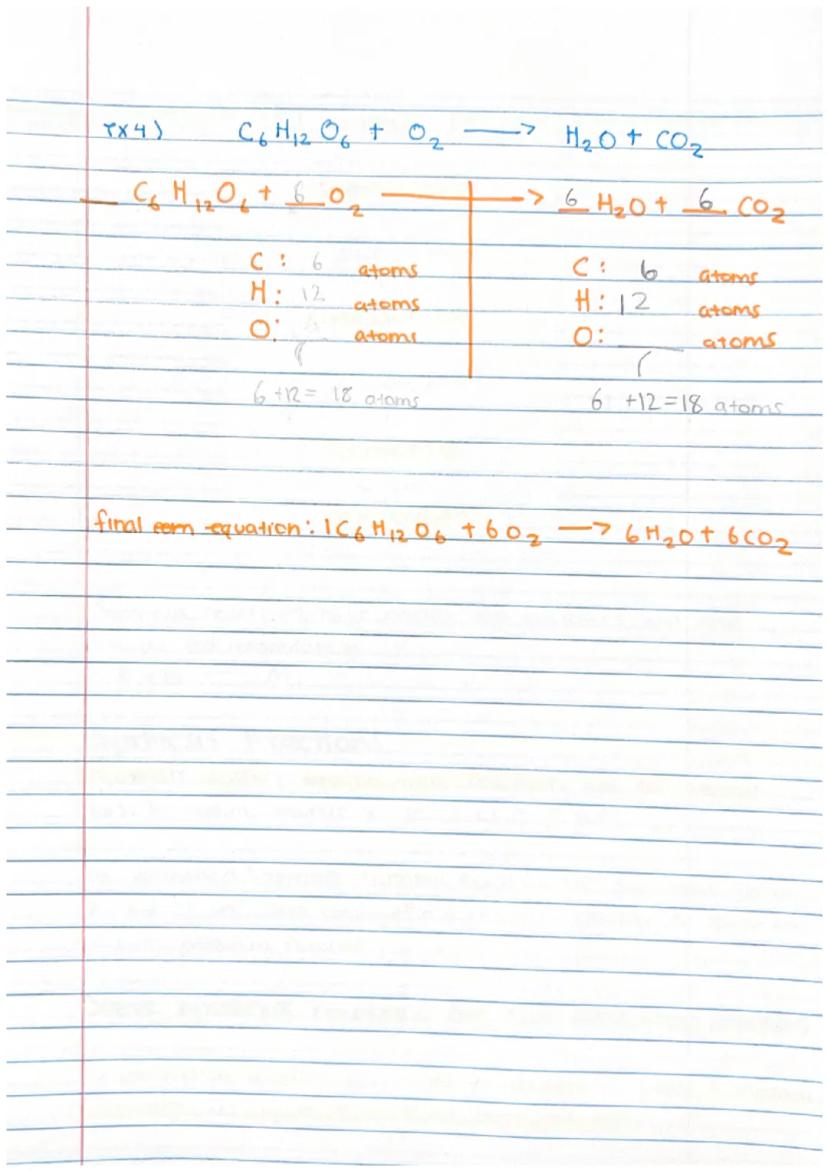 ex4) C₆H₁₂O₆ + O₂ ⟶ H₂O + CO₂
__ C₆H₁₂O₆ + 6 O₂ ⟶ 6 H₂O + 6 CO₂
C : 6 atoms C : 6 atoms
H : 12 atoms H : 12 atoms
O: __ atoms O: __ atoms
6 +12 = 18 atoms 6 +12 = 18 atoms
final equation: 1C₆H₁₂O₆ + 6O₂ ⟶ 6H₂O + 6CO₂